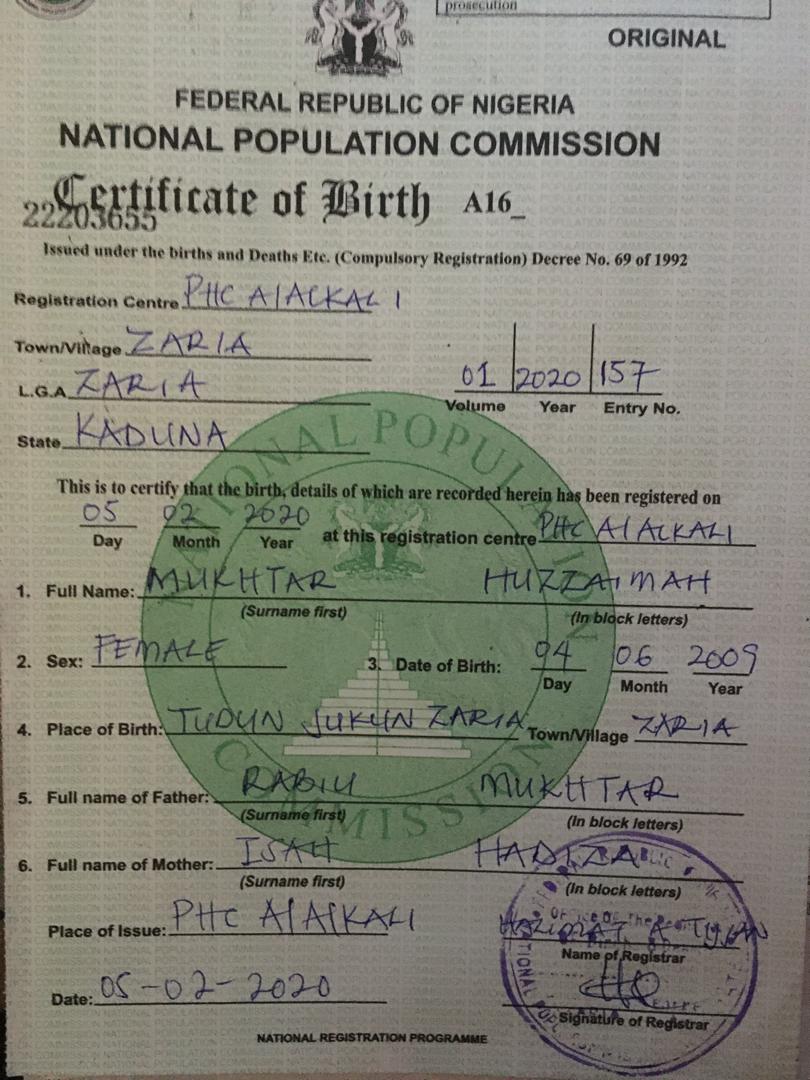 prosecution
ORIGINAL
FEDERAL REPUBLIC OF NIGERIA
NATIONAL POPULATION COMMISSION
Certificate of Birth A16_
22203655
Issued under the births and Deaths Etc. (Compulsory Registration) Decree No. 69 of 1992
Registration Centre PHC AlALKALI
Town/Village ZARIA
L.G.A ZARIA
01 2020 157
Volume Year Entry No.
State KADUNA
NATIONAL POPULATION COMMISSION
This is to certify that the birth, details of which are recorded herein has been registered on
05 02 2020 at this registration centre PHC AlALKALI
Day Month Year
1. Full Name: MUKHTAR HUZZAIMAH
(Surname first) (In block letters)
2. Sex: FEMALE 3. Date of Birth: 04 06 2009
Day Month Year
4. Place of Birth: TUDUN JUKUN ZARIA Town/Village ZARIA
5. Full name of Father: RABIU MUKHTAR
(Surname first) (In block letters)
6. Full name of Mother: ISAH HADIZA
(Surname first) (In block letters)
Place of Issue: PHC AlALKALI
Name of Registrar
Date: 05-02-2020
Signature of Registrar
NATIONAL REGISTRATION PROGRAMME